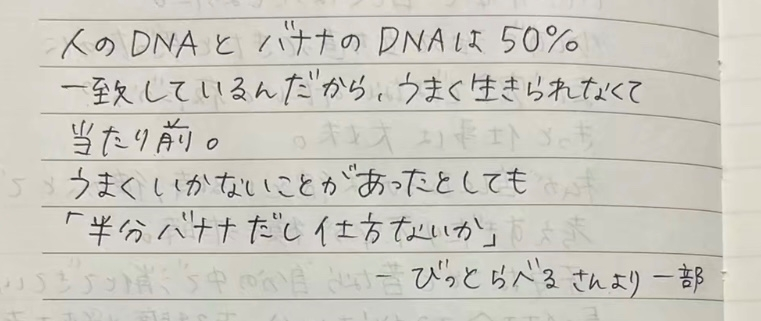 人のDNAとバナナのDNAは50%
一致しているんだから、うまく生きられなくて
当たり前。
うまくいかないことがあったとしても
「半分バナナだし仕方ないか」
- びっとらべるさんより一部